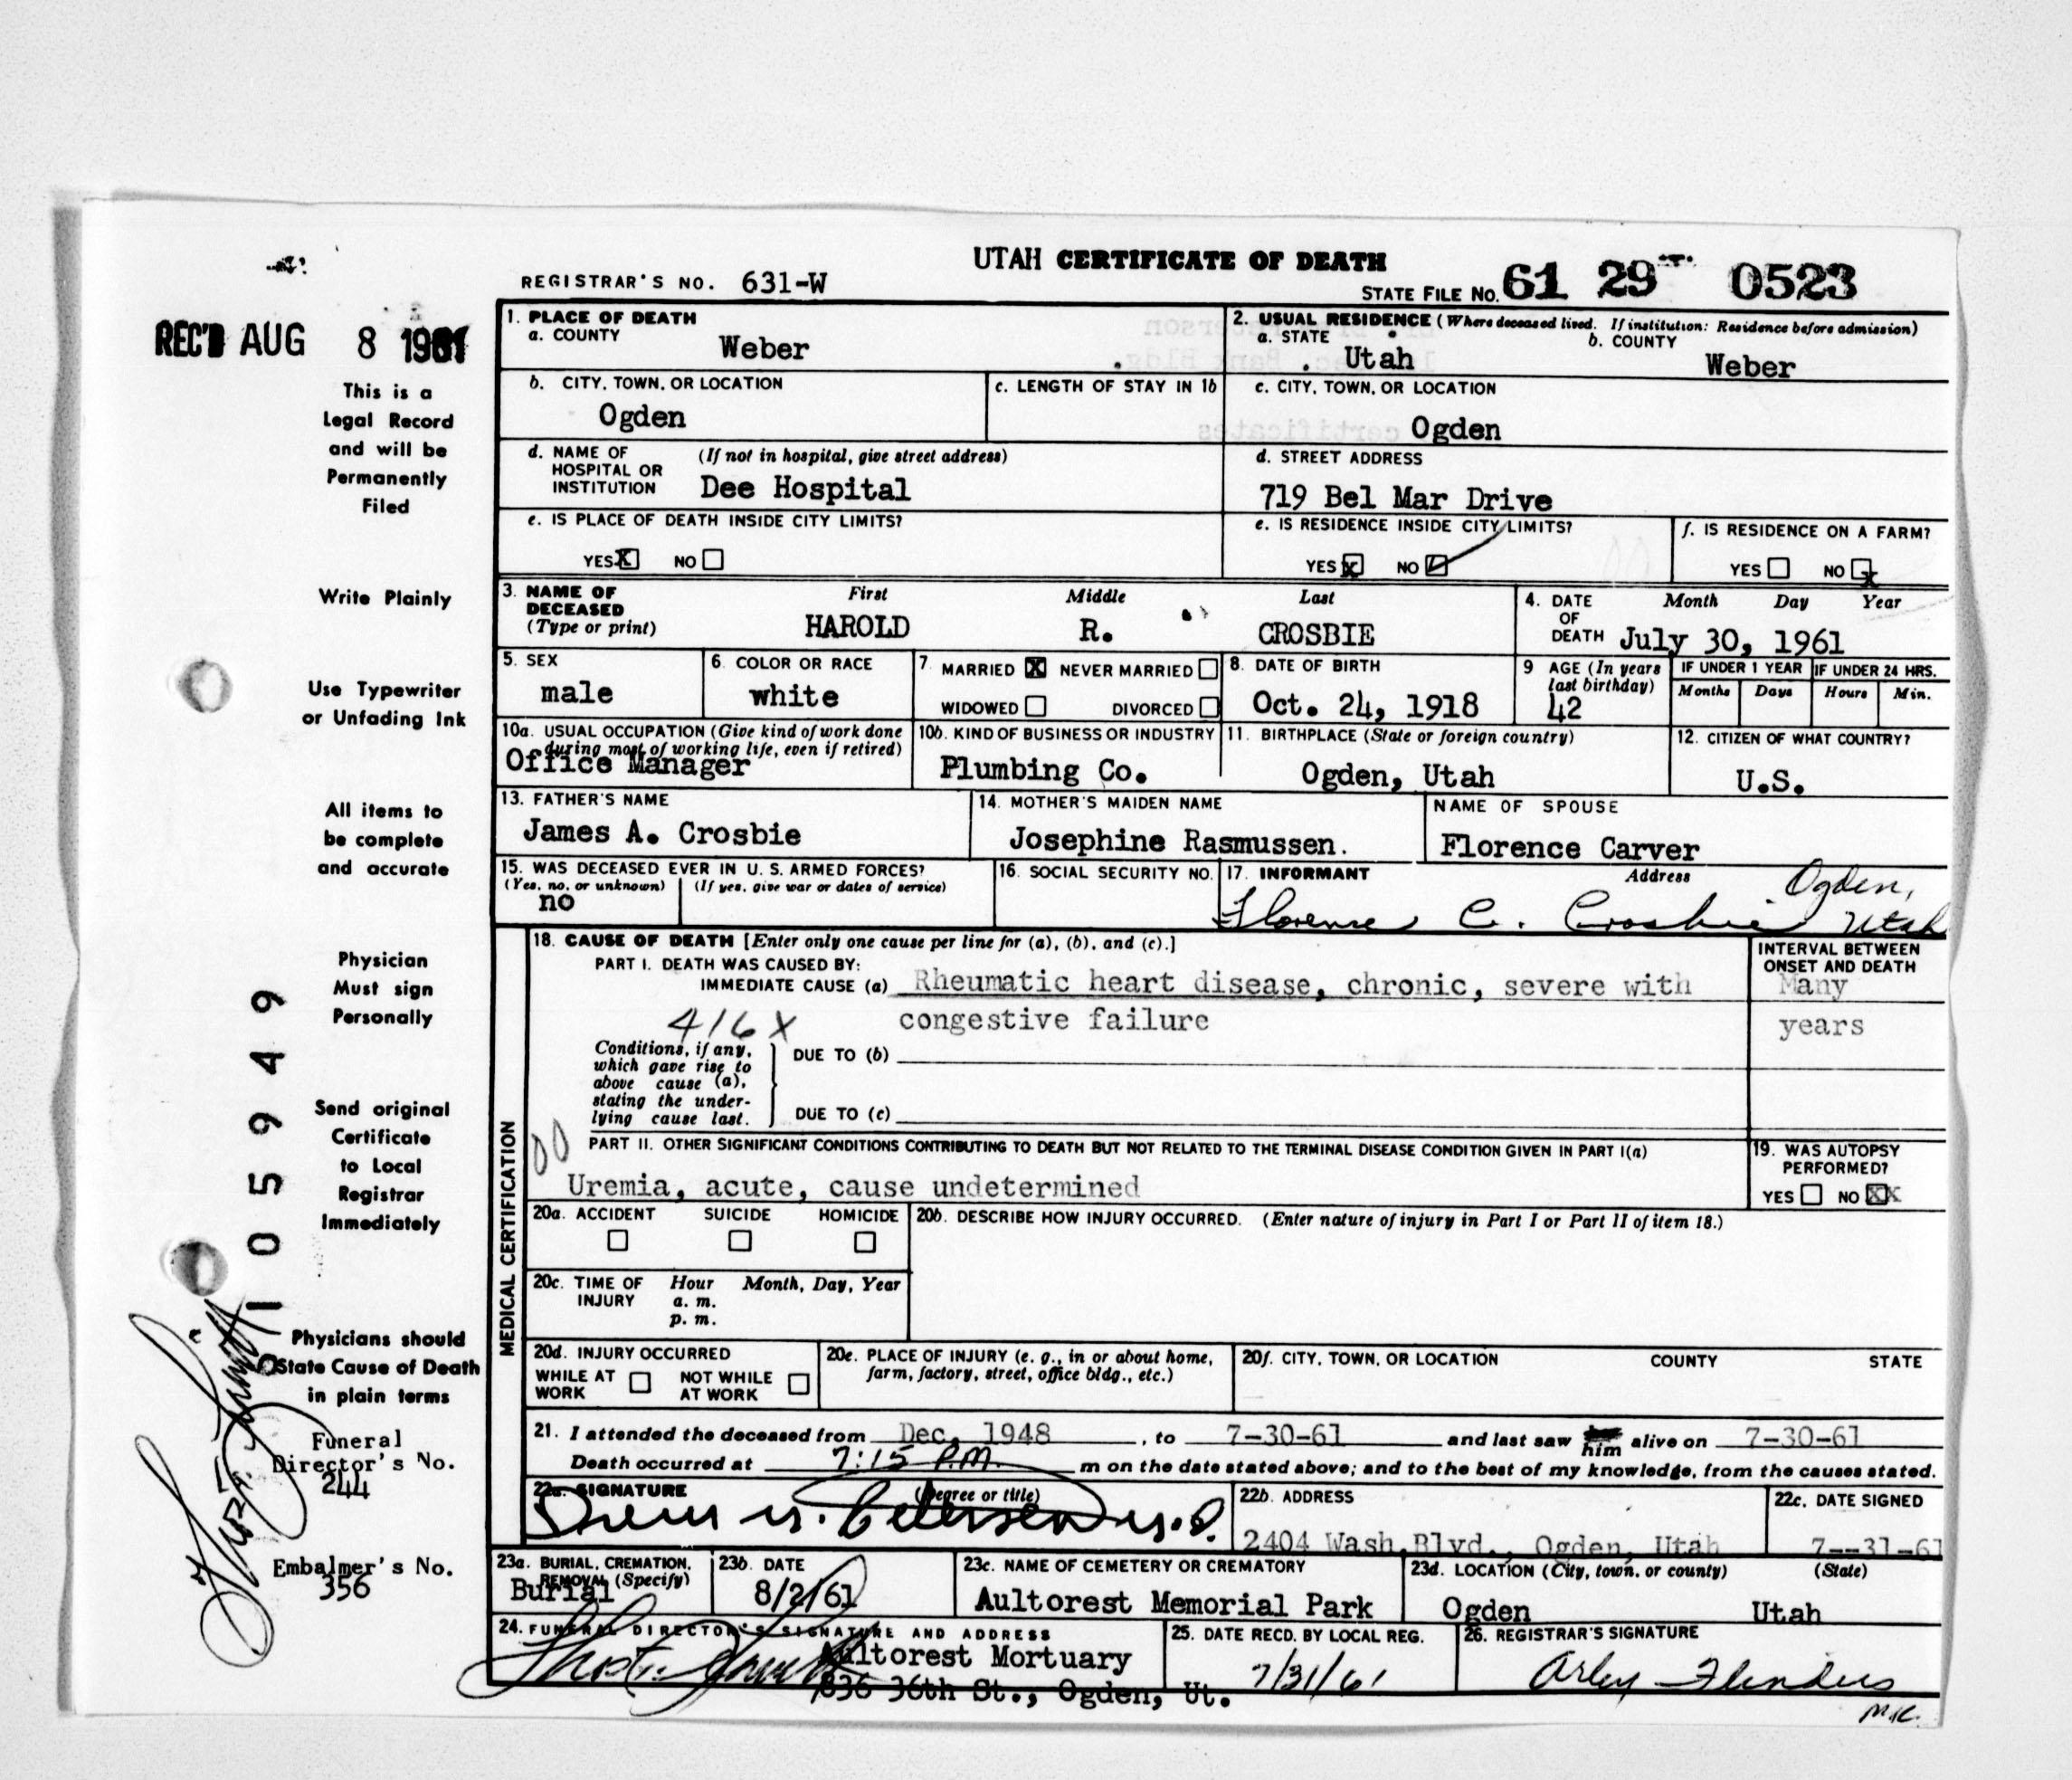 UTAH CERTIFICATE OF DEATH
REGISTRAR'S NO. 631-W
STATE FILE NO. 61 29 0523
REC'D AUG 8 1961
This is a
Legal Record
and will be
Permanently
Filed
Write Plainly
Use Typewriter
or Unfading Ink
All items to
be complete
and accurate
Physician
Must sign
Personally
Send original
Certificate
to Local
Registrar
Immediately
Physicians should
State Cause of Death
in plain terms
Funeral
Director's No.
244
Embalmer's No.
356
1. PLACE OF DEATH
a. COUNTY Weber
2. USUAL RESIDENCE (Where deceased lived. If institution: Residence before admission)
a. STATE Utah b. COUNTY Weber
b. CITY, TOWN, OR LOCATION Ogden
c. LENGTH OF STAY IN 1b
c. CITY, TOWN, OR LOCATION Ogden
d. NAME OF HOSPITAL OR INSTITUTION (If not in hospital, give street address)
Dee Hospital
d. STREET ADDRESS
719 Bel Mar Drive
e. IS PLACE OF DEATH INSIDE CITY LIMITS?
YES X NO
e. IS RESIDENCE INSIDE CITY LIMITS?
YES X NO
f. IS RESIDENCE ON A FARM?
YES NO X
3. NAME OF DECEASED (Type or print)
First Middle Last
HAROLD R. CROSBIE
4. DATE OF DEATH Month Day Year
July 30, 1961
5. SEX
male
6. COLOR OR RACE
white
7. MARRIED X NEVER MARRIED
WIDOWED DIVORCED
8. DATE OF BIRTH
Oct. 24, 1918
9 AGE (In years last birthday)
42
IF UNDER 1 YEAR IF UNDER 24 HRS.
Months Days Hours Min.
10a. USUAL OCCUPATION (Give kind of work done during most of working life, even if retired)
Office Manager
10b. KIND OF BUSINESS OR INDUSTRY
Plumbing Co.
11. BIRTHPLACE (State or foreign country)
Ogden, Utah
12. CITIZEN OF WHAT COUNTRY?
U.S.
13. FATHER'S NAME
James A. Crosbie
14. MOTHER'S MAIDEN NAME
Josephine Rasmussen.
NAME OF SPOUSE
Florence Carver
15. WAS DECEASED EVER IN U. S. ARMED FORCES?
(Yes, no, or unknown) (If yes, give war or dates of service)
no
16. SOCIAL SECURITY NO.
17. INFORMANT Address
Florence C. Crosbie Ogden, Utah
MEDICAL CERTIFICATION
18. CAUSE OF DEATH [Enter only one cause per line for (a), (b), and (c).]
PART I. DEATH WAS CAUSED BY:
IMMEDIATE CAUSE (a) Rheumatic heart disease, chronic, severe with
416X congestive failure
INTERVAL BETWEEN ONSET AND DEATH
Many
years
Conditions, if any, which gave rise to above cause (a), stating the underlying cause last.
DUE TO (b)
DUE TO (c)
PART II. OTHER SIGNIFICANT CONDITIONS CONTRIBUTING TO DEATH BUT NOT RELATED TO THE TERMINAL DISEASE CONDITION GIVEN IN PART I(a)
Uremia, acute, cause undetermined
19. WAS AUTOPSY PERFORMED?
YES NO XX
20a. ACCIDENT SUICIDE HOMICIDE
20b. DESCRIBE HOW INJURY OCCURRED. (Enter nature of injury in Part I or Part II of item 18.)
20c. TIME OF INJURY Hour Month, Day, Year
a. m.
p. m.
20d. INJURY OCCURRED
WHILE AT WORK NOT WHILE AT WORK
20e. PLACE OF INJURY (e. g., in or about home, farm, factory, street, office bldg., etc.)
20f. CITY, TOWN, OR LOCATION COUNTY STATE
21. I attended the deceased from Dec. 1948, to 7-30-61 and last saw him alive on 7-30-61
Death occurred at 7:15 P.M. m on the date stated above; and to the best of my knowledge, from the causes stated.
22a. SIGNATURE (Degree or title)
Drew M. Petersen M.D.
22b. ADDRESS
2404 Wash.Blvd., Ogden, Utah
22c. DATE SIGNED
7--31-61
23a. BURIAL, CREMATION, REMOVAL (Specify)
Burial
23b. DATE
8/2/61
23c. NAME OF CEMETERY OR CREMATORY
Aultorest Memorial Park
23d. LOCATION (City, town, or county) (State)
Ogden Utah
24. FUNERAL DIRECTOR'S SIGNATURE AND ADDRESS
Aultorest Mortuary
836 36th St., Ogden, Ut.
25. DATE RECD. BY LOCAL REG.
7/31/61
26. REGISTRAR'S SIGNATURE
Arley Flinders